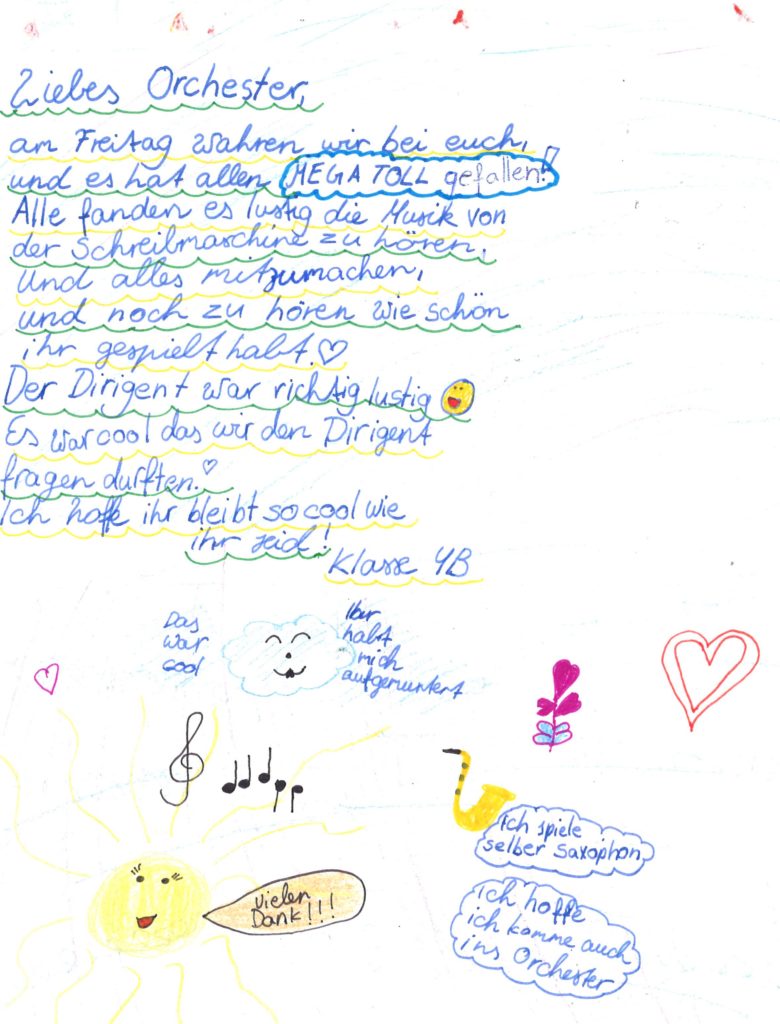 Liebes Orchester,
am Freitag wahren wir bei euch,
und es hat allen MEGA TOLL gefallen!
Alle fanden es lustig die Musik von
der Schreibmaschine zu hören,
und alles mitzumachen,
und noch zu hören wie schön
ihr gespielt habt.
Der Dirigent war richtig lustig
Es war cool das wir den Dirigent
fragen durften.
Ich hoffe ihr bleibt so cool wie
ihr seid!
Klasse 4B
Das
war
cool
Ihr
habt
mich
aufgemuntert
ich spiele
selber saxophon
vielen
Dank!!!
ich hoffe
ich komme auch
ins Orchester